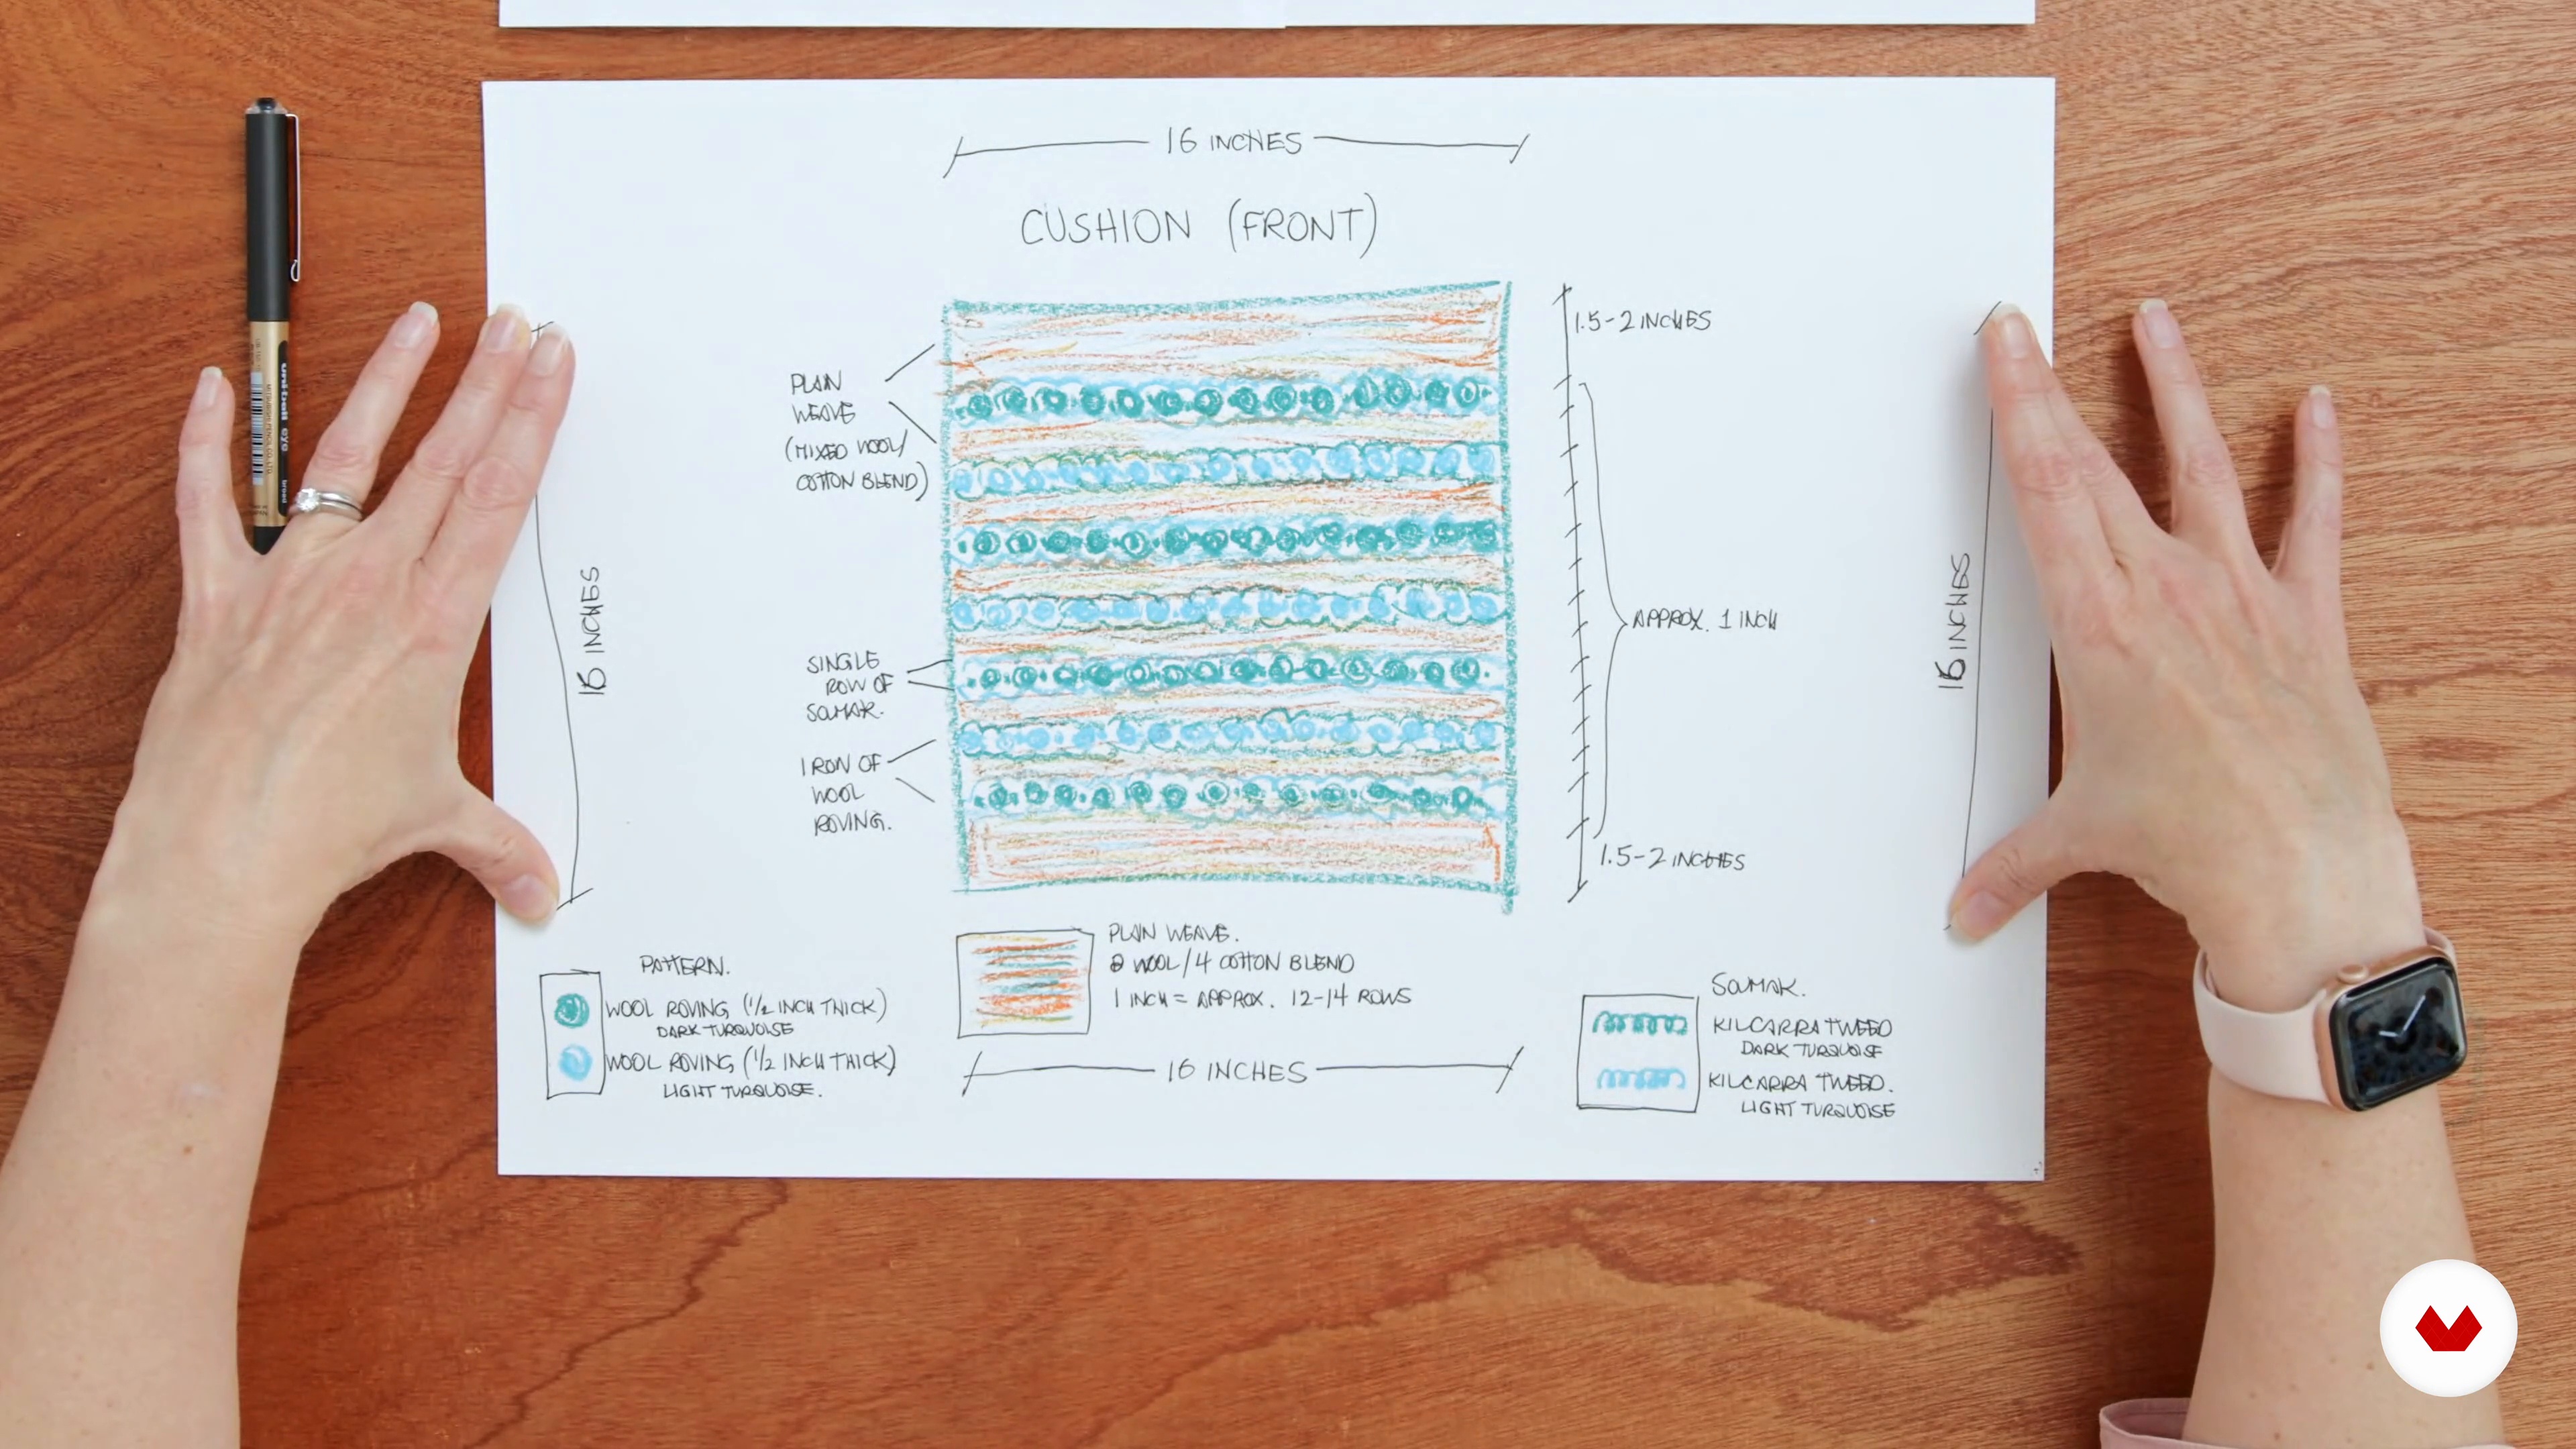 16 INCHES
CUSHION (FRONT)
1.5-2 INCHES
PLAIN
WEAVE
(MIXED WOOL/
COTTON BLEND)
16 INCHES
APPROX. 1 INCH
16 INCHES
SINGLE
ROW OF
SOUMAK.
1 ROW OF
WOOL
ROVING.
1.5-2 INCHES
PATTERN.
WOOL ROVING (1/2 INCH THICK)
DARK TURQUOISE
WOOL ROVING (1/2 INCH THICK)
LIGHT TURQUOISE.
PLAIN WEAVE.
2 WOOL/4 COTTON BLEND
1 INCH = APPROX. 12-14 ROWS
16 INCHES
SOUMAK.
KILCARRA TWEED
DARK TURQUOISE
KILCARRA TWEED.
LIGHT TURQUOISE
uni-ball eye
broad